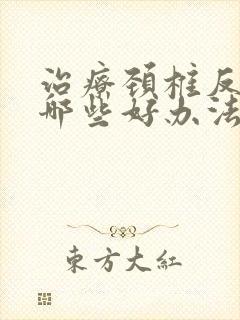 治療頚椎反
哪些好办法
東方大紅